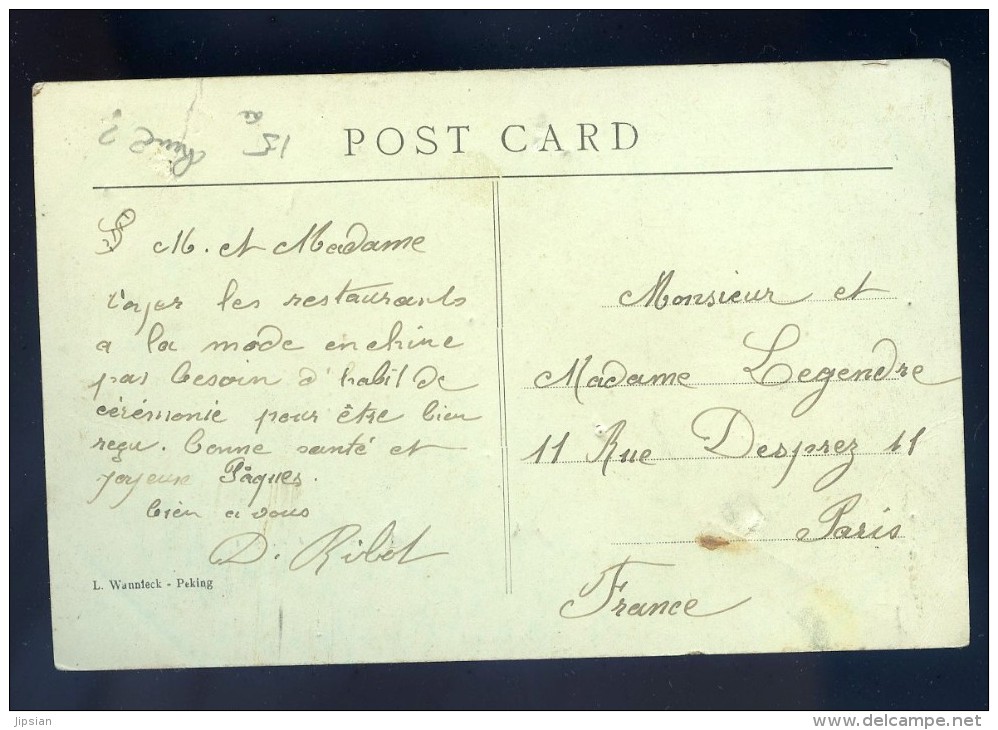 Chine ?
15
POST CARD
M. et Madame
Voyer les restaurants
a la mode en chine
pas besoin d'habit de
cérémonie pour être bien
reçu. bonne santé et
joyeux Pâques.
bien a vous
D. Ribot
L. Wannieck - Peking
Monsieur et
Madame Legendre
11 Rue Desprez 11
Paris
France
Jipsian
www.delcampe.net